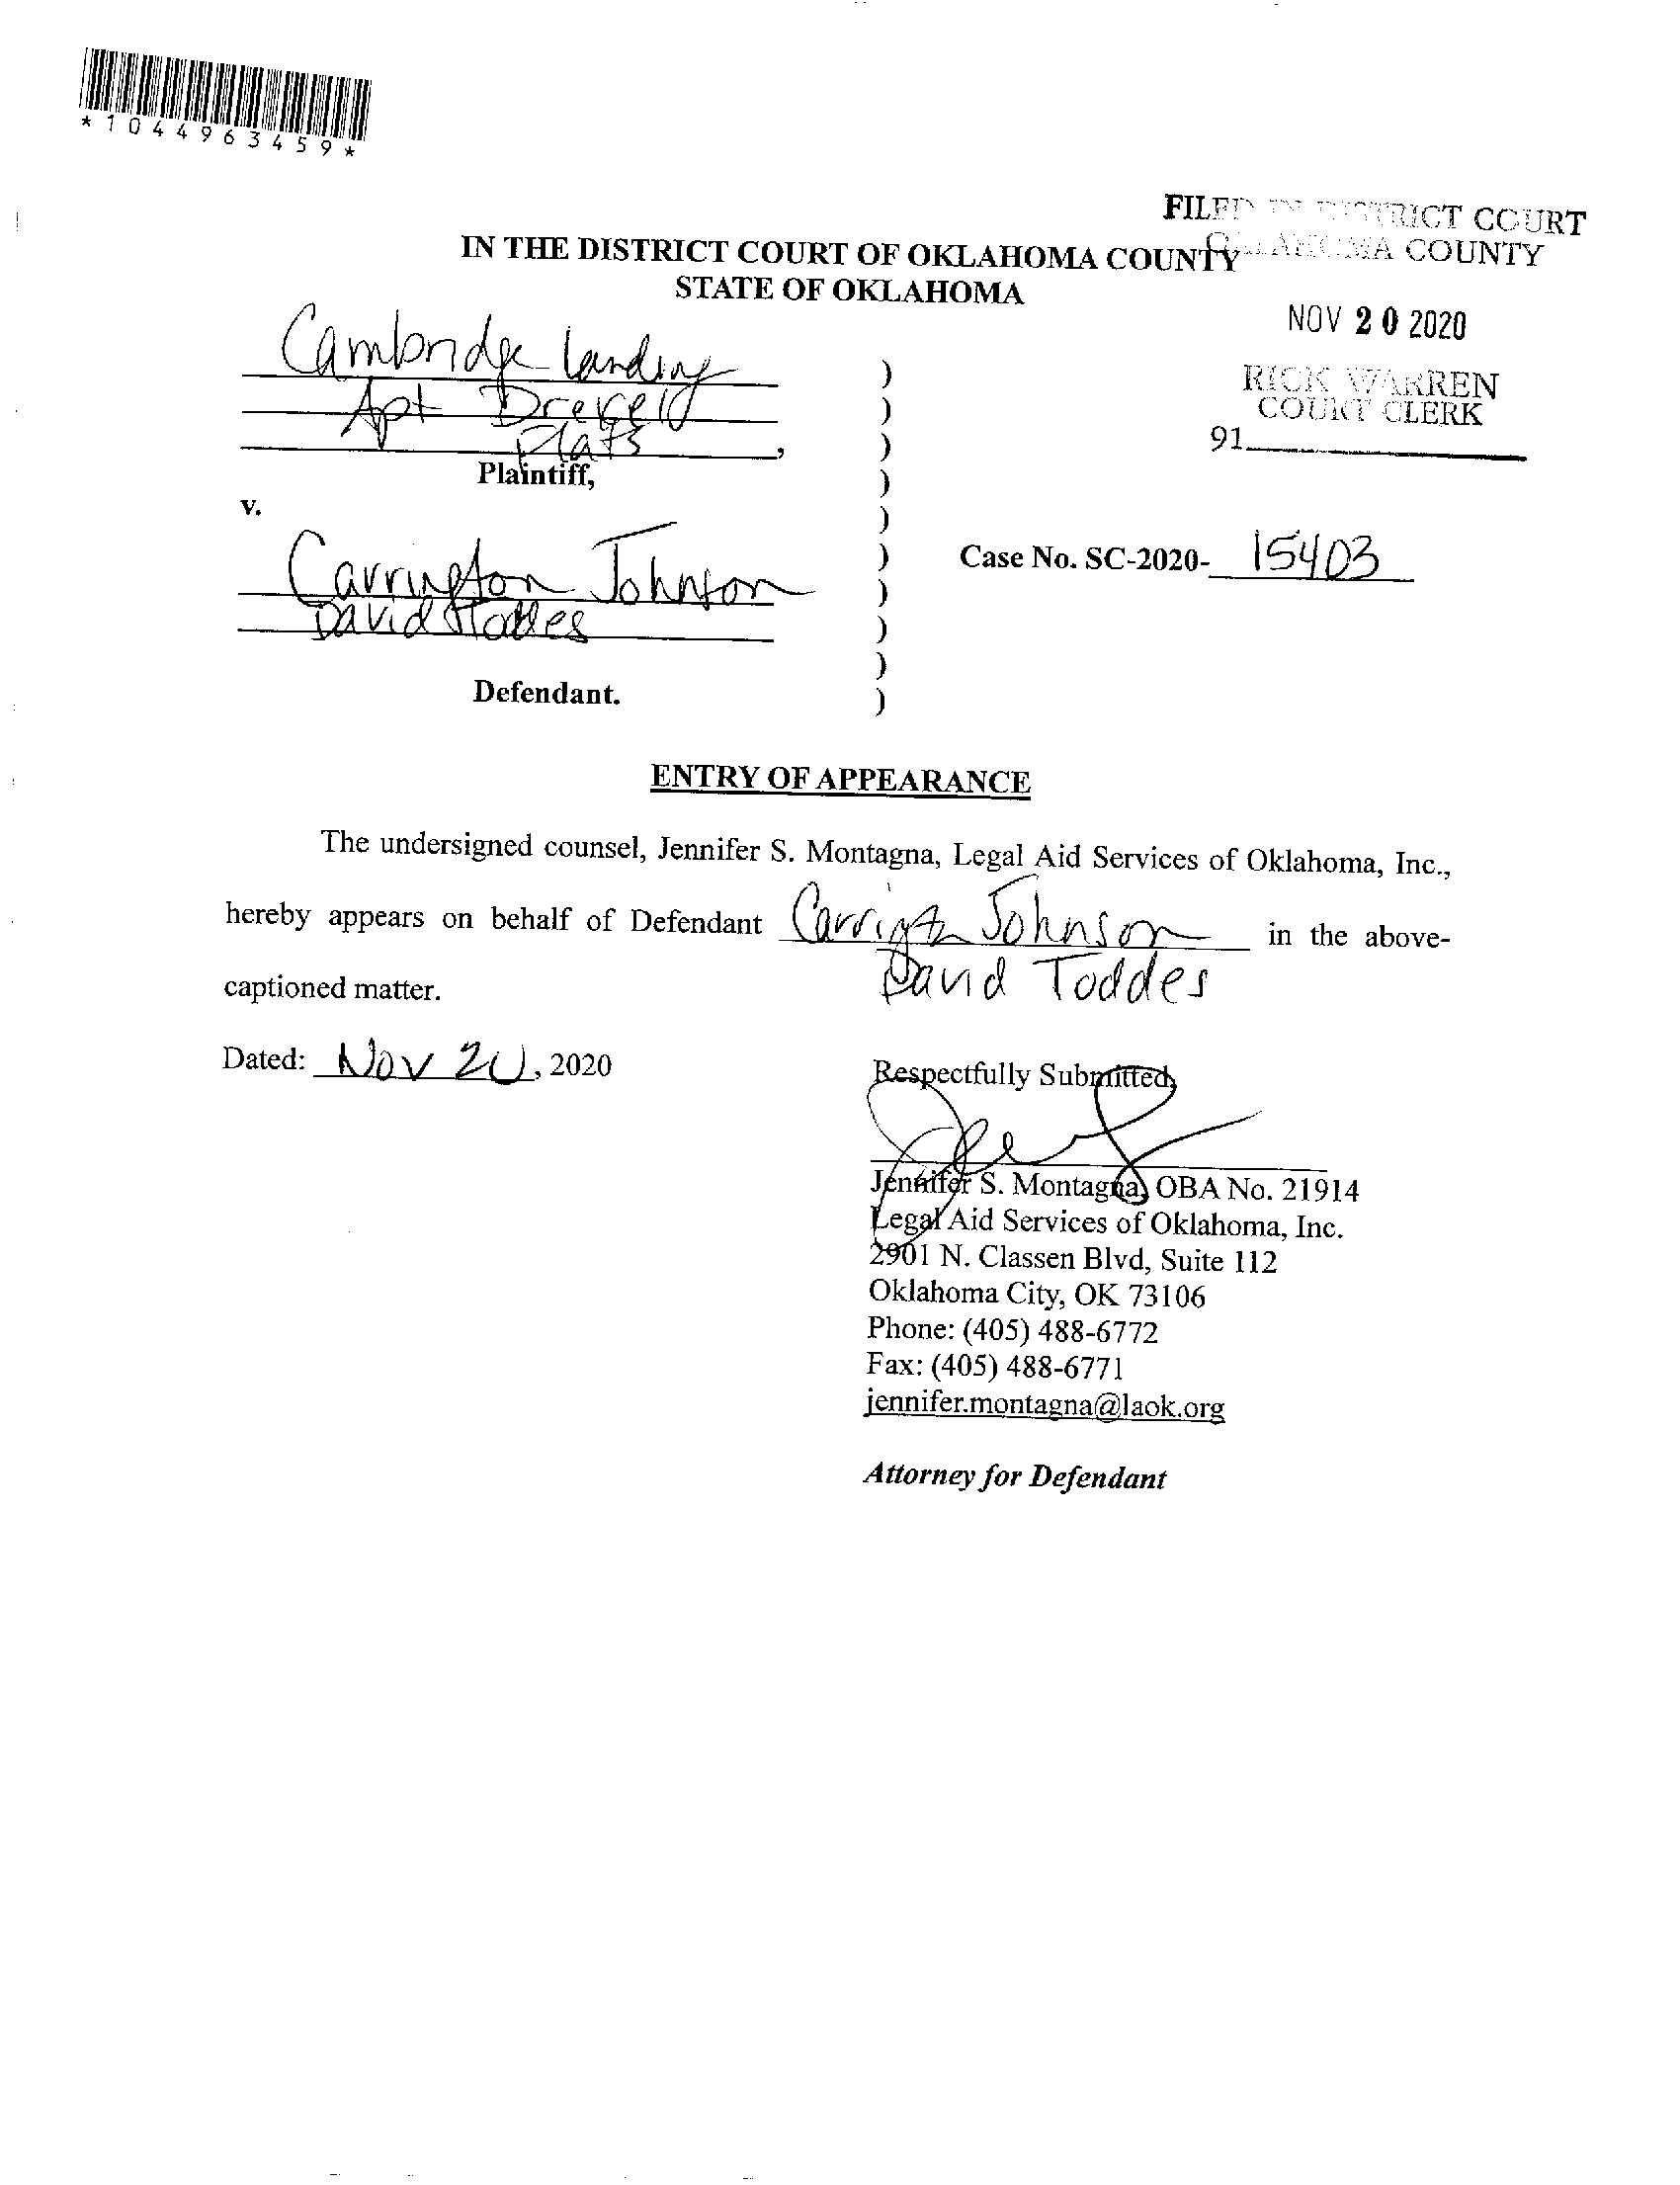 *1044963459*
FILED IN DISTRICT COURT
OKLAHOMA COUNTY
IN THE DISTRICT COURT OF OKLAHOMA COUNTY
STATE OF OKLAHOMA
NOV 20 2020
RICK WARREN
COURT CLERK
91
Cambridge Landing
Apt
Flats
,
Plaintiff,
v.
Carrington Johnson
David
Defendant.
)
)
)
)
)
)
)
)
)
)
Case No. SC-2020- 15403
ENTRY OF APPEARANCE
The undersigned counsel, Jennifer S. Montagna, Legal Aid Services of Oklahoma, Inc.,
hereby appears on behalf of Defendant Carrington Johnson in the above-
David Toddes
captioned matter.
Dated: Nov 20, 2020
Respectfully Submitted,
Jennifer S. Montagna, OBA No. 21914
Legal Aid Services of Oklahoma, Inc.
2901 N. Classen Blvd, Suite 112
Oklahoma City, OK 73106
Phone: (405) 488-6772
Fax: (405) 488-6771
jennifer.montagna@laok.org
Attorney for Defendant